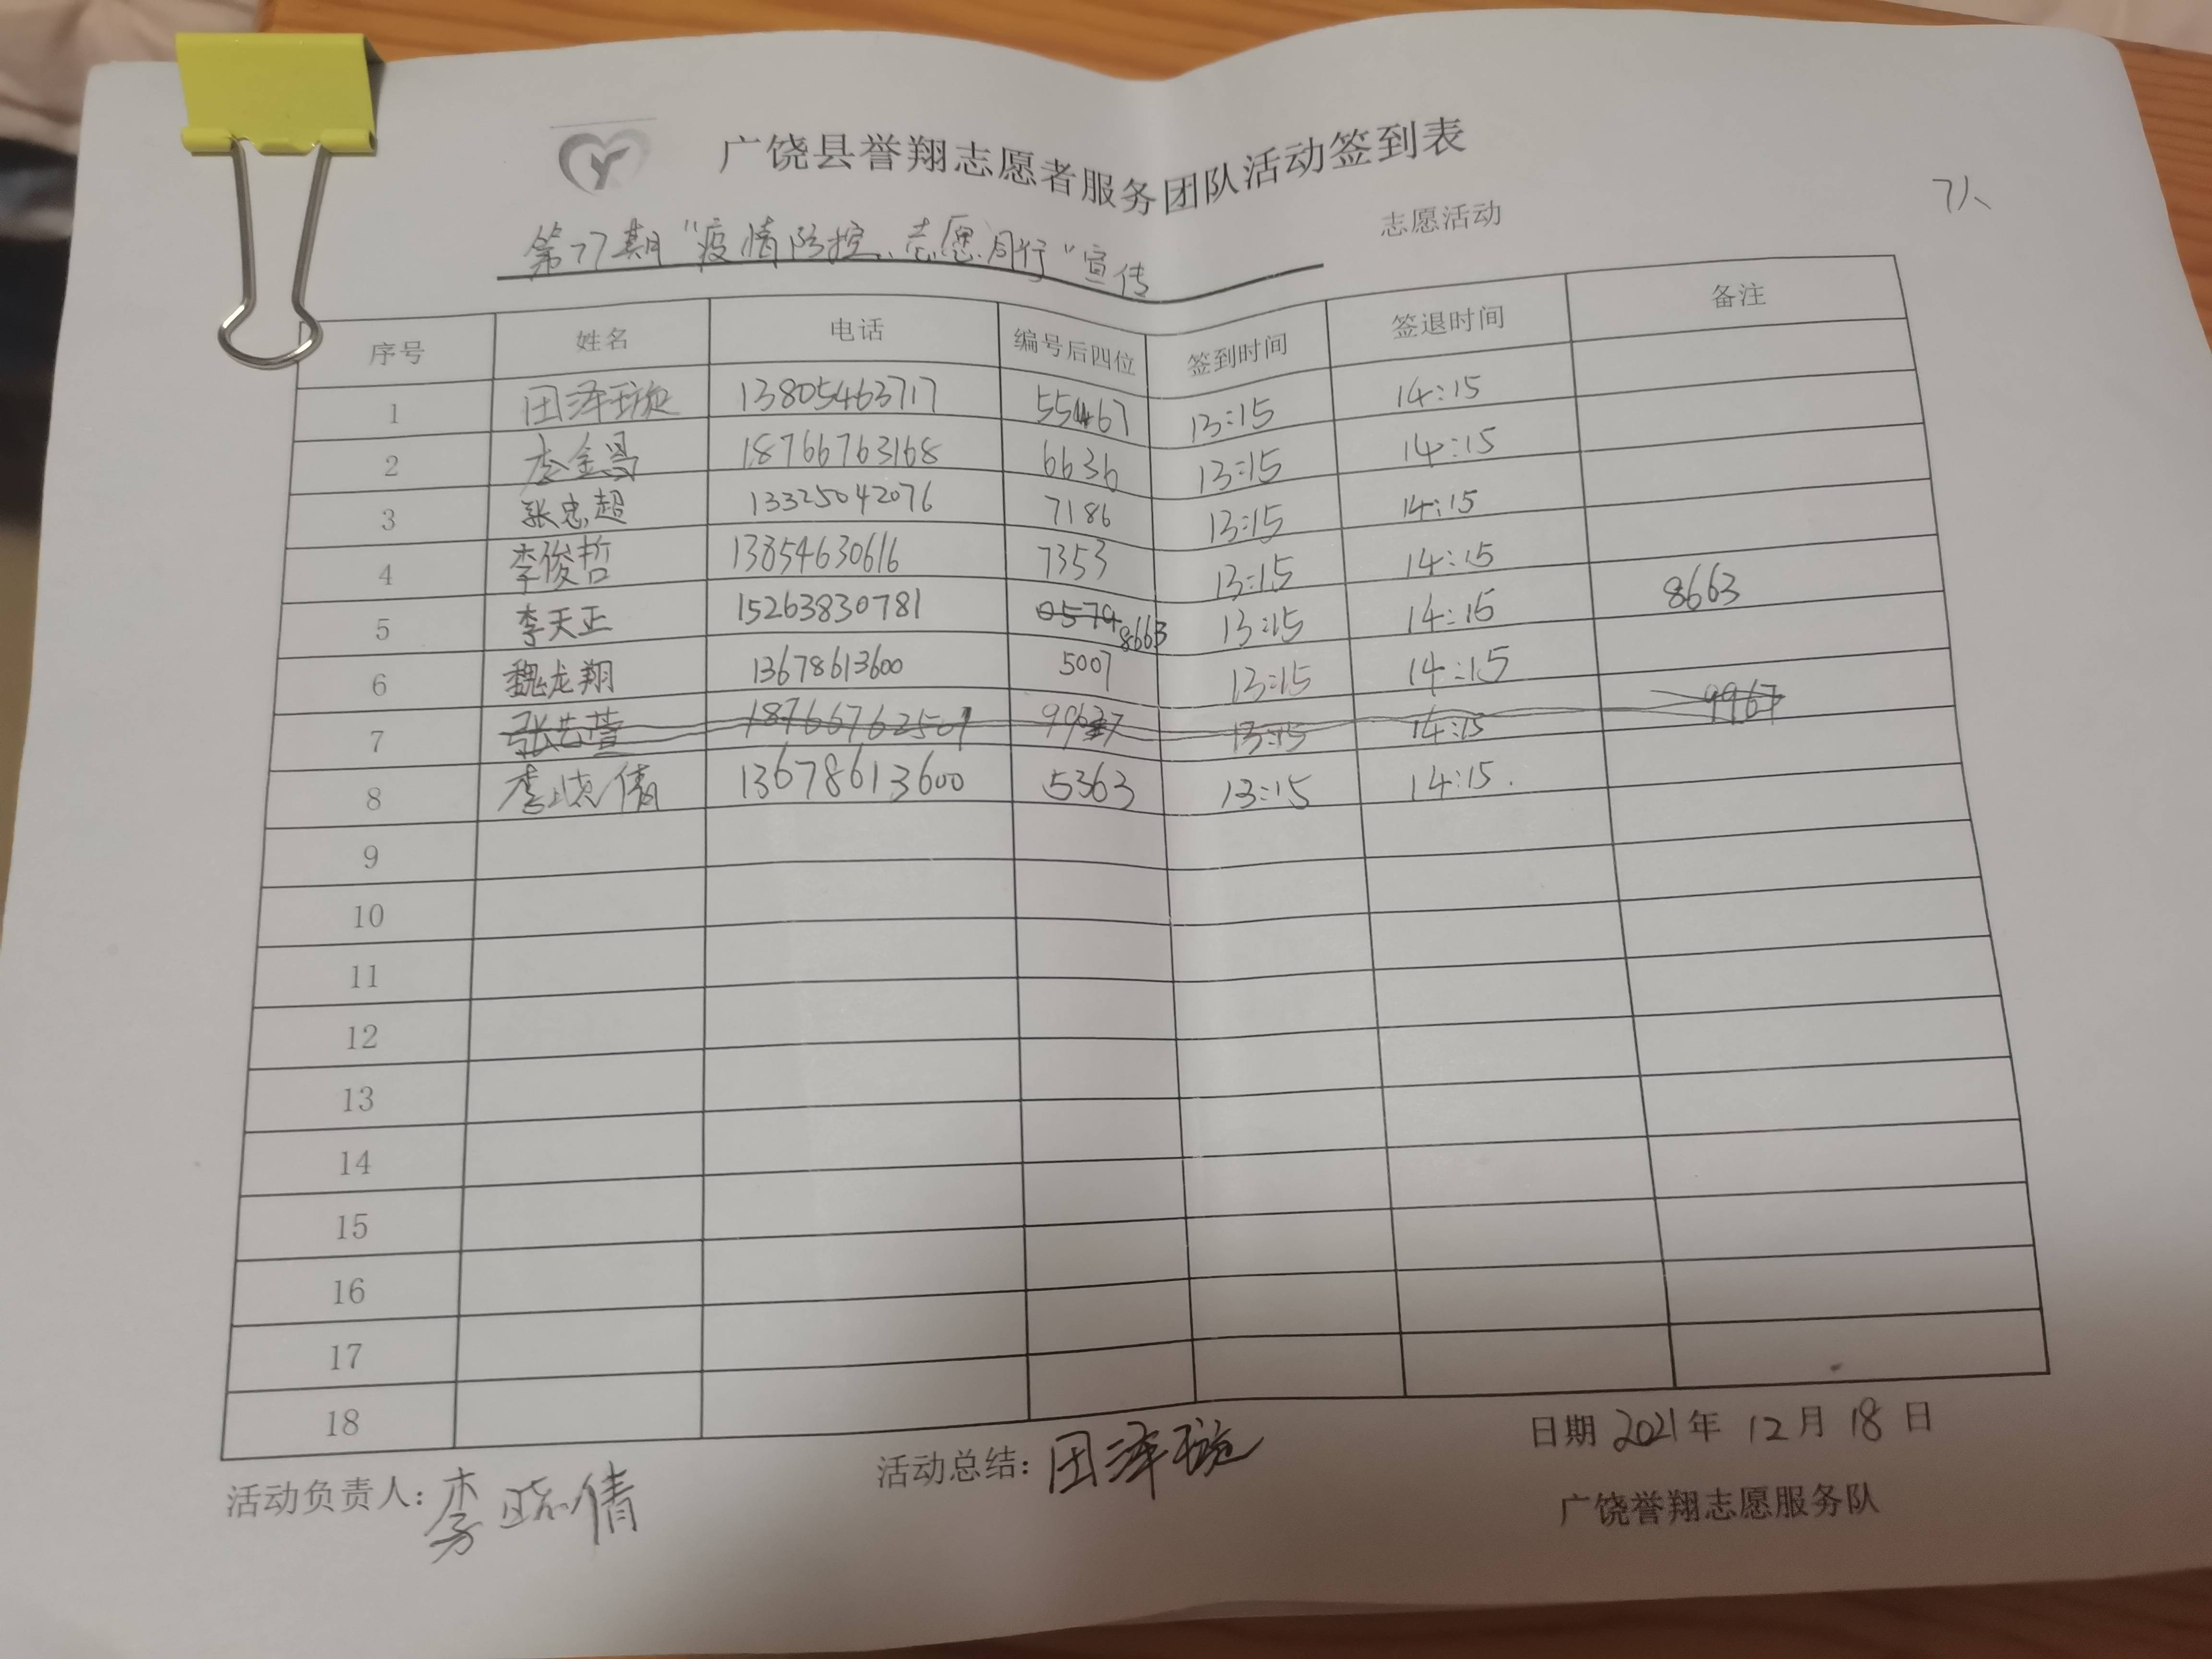 广饶县誉翔志愿者服务团队活动签到表
7人
第77期“疫情防控、志愿同行”宣传 志愿活动
序号 姓名 电话 编号后四位 签到时间 签退时间 备注
1 田泽璇 13805463717 13:15 14:15
2 李金昌 18766763168 6636 13:15 14:15
3 张忠超 13325042076 7186 13:15 14:15
4 李俊哲 13854630616 7353 13:15 14:15
5 李天正 15263830781 0579 8663 13:15 14:15 8663
6 魏龙翔 13678613600 5007 13:15 14:15
7 18766762501 13:15 14:15 9967
8 李晓倩 13678613600 5363 13:15 14:15.
9
10
11
12
13
14
15
16
17
18
活动负责人：李晓倩 活动总结：田泽璇 日期 2021年 12月 18日
广饶誉翔志愿服务队